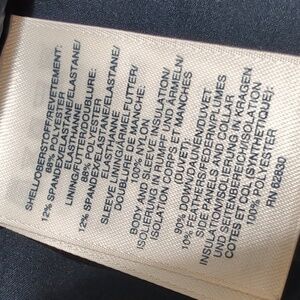 SHELL/OBERSTOFF/REVETEMENT:
88% POLYESTER
12% SPANDEX/ELASTANE/ELASTANE/
LINING/FUTTER/DOUBLURE:
88% POLYESTER
12% SPANDEX/ELASTANE/ELASTANE/
SLEEVE LINING/ÄRMELFUTTER/
DOUBLURE DE MANCHE:
100% NYLON
BODY AND SLEEVE INSULATION/
ISOLIERUNG IN RUMPF UND ÄRMELN/
ISOLATION CORPS ET MANCHES
(DUVET):
90% DOWN/DAUNEN/DUVET
10% FEATHERS/FEDERN/PLUMES
SIDE PANELS AND COLLAR
INSULATION/ISOLIERUNG IN KRAGEN
UND SEITENBEREICH/ISOLATION
COTES ET COL (SYNTHETIQUE):
100% POLYESTER
RN 62830